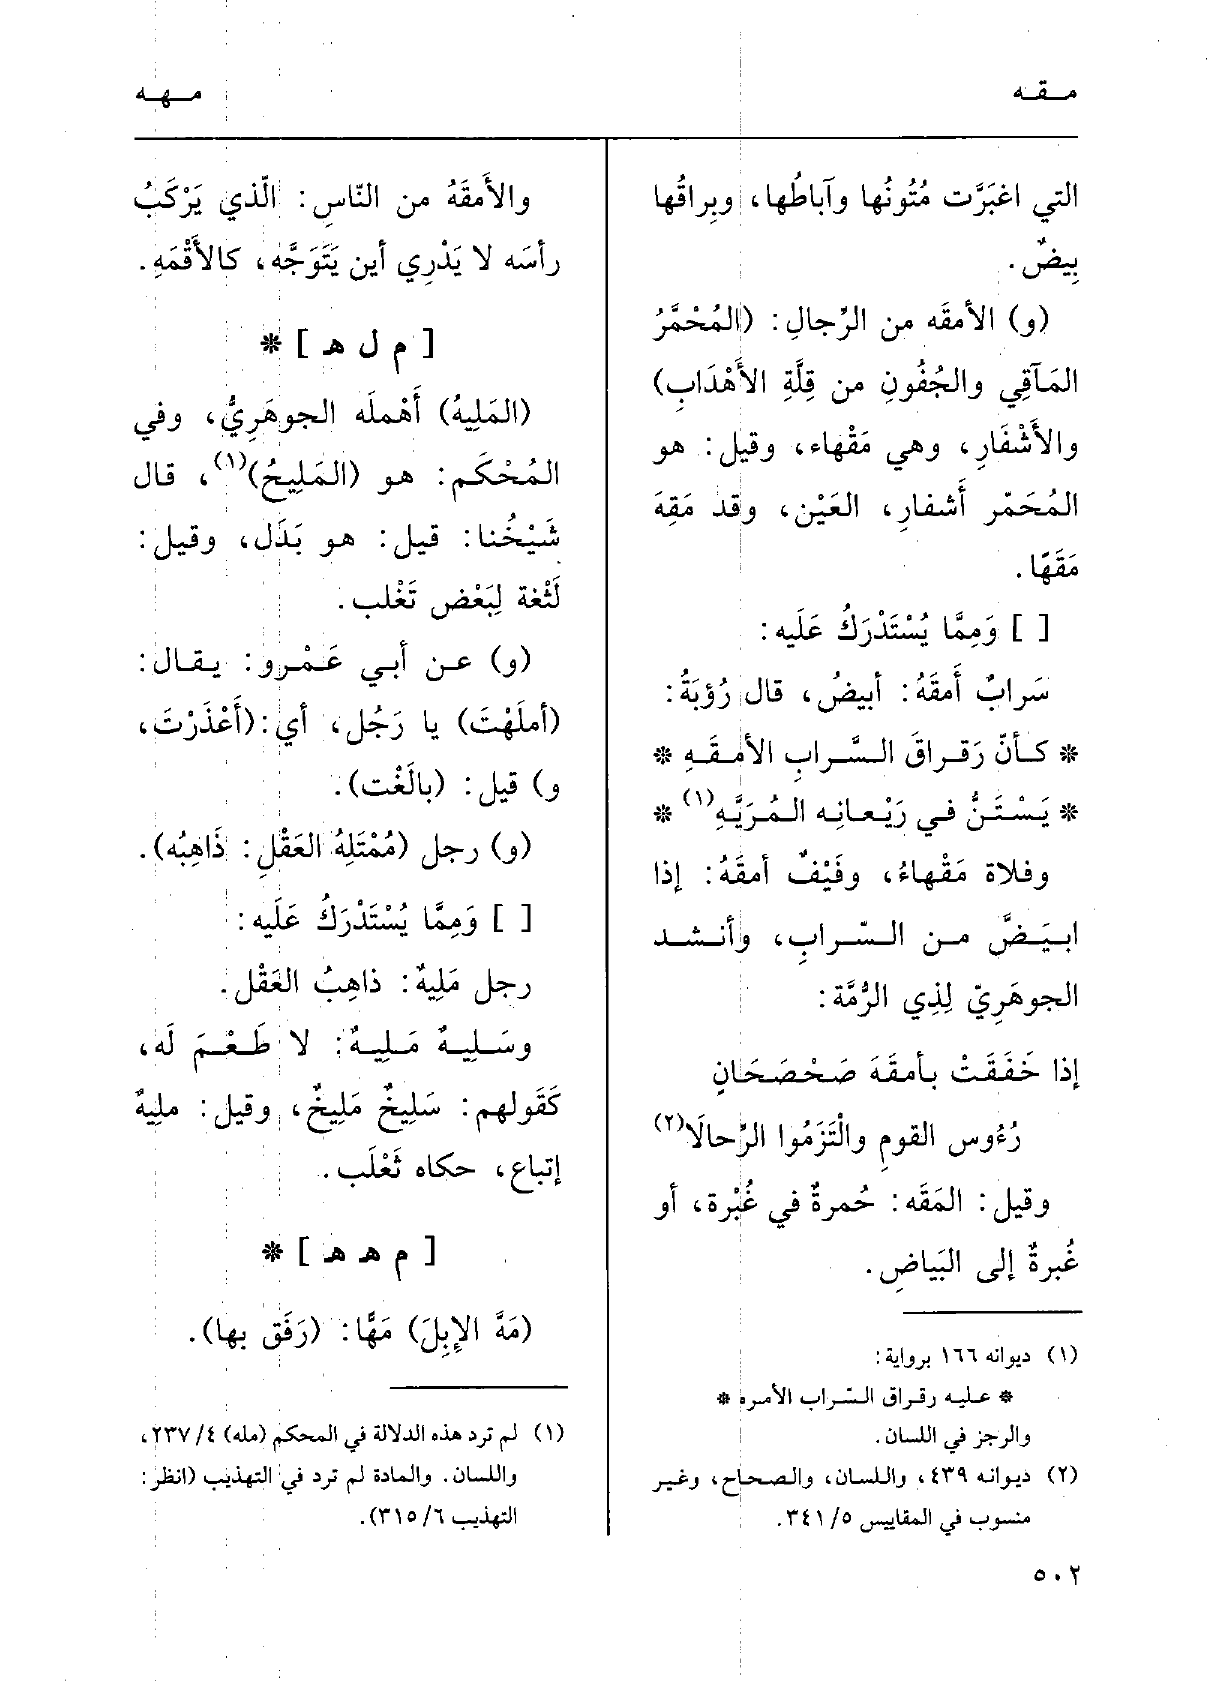 مـقـه
مـهـه
التي اغبَرَّت مُتُونُها وآباطُها، وبِراقُها
بِيضٌ.
(و) الأمقَه من الرِّجالِ: (المُحْمَّرُ
المَآقِي والجُفُونِ من قِلَّةِ الأَهْدَابِ)
والأَشْفَارِ، وهي مَقْهاء، وقيل: هو
المُحَمّر أَشفارِ، العَيْن، وقد مَقِهَ
مَقَهًا.
[ ] وَمِمَّا يُسْتَدْرَكُ عَلَيه:
سَرابٌ أَمقَهُ: أبيضُ، قال رُؤبَةُ:
* كـأنّ رَقـراقَ الـسَّـرابِ الأمـقَـهِ *
* يَـسْـتَـنُّ فـي رَيْـعـانِـه الـمُـرَيَّـهِ(١) *
وفلاة مَقْهاءُ، وفَيْفٌ أمقَهُ: إذا
ابـيَـضَّ مـن الـسّـرابِ، وأنـشـد
الجوهَرِيّ لِذِي الرُّمَّة:
إذا خَفَقَتْ بأمقَهَ صَحْصَحَانٍ
رُءُوس القومِ والْتَزَمُوا الرِّحالَا(٢)
وقيل: المَقَه: حُمرةٌ في غُبْرة، أو
غُبرةٌ إلى البَياضِ.
(١) ديوانه ١٦٦ برواية:
* عـليه رقـراق الـسّـراب الأمـره *
والرجز في اللسان.
(٢) ديوانه ٤٣٩، واللسان، والصحاح، وغير
منسوب في المقاييس ٥/ ٣٤١.
والأَمقَهُ من النّاسِ: الّذي يَرْكَبُ
رأسَه لا يَدْرِي أين يَتَوَجَّه، كالأَقْمَهِ.
[ م ل هـ ] *
(المَلِيهُ) أَهْملَه الجوهَرِيُّ، وفي
المُحْكَم: هو (المَلِيحُ)(١)، قال
شَيْخُنا: قيل: هو بَدَل، وقيل:
لَثْغة لِبَعْض تَغْلب.
(و) عـن أبـي عَـمْـرو: يـقـال:
(أملَهْتَ) يا رَجُل، أي:(أَعْذَرْتَ،
و) قيل: (بالَغْت).
(و) رجل (مُمْتَلِهُ العَقْلِ: ذَاهِبُه).
[ ] وَمِمَّا يُسْتَدْرَكُ عَلَيه:
رجل مَلِيهٌ: ذاهِبُ العَقْل.
وسَـلِيـهٌ مَـلِيـهٌ: لا طَـعْـمَ لَه،
كَقَولهم: سَلِيخٌ مَلِيخٌ، وقيل: مليهٌ
إتباع، حكاه ثَعْلَب.
[ م هـ هـ ] *
(مَهَّ الإِبِلَ) مَهًّا: (رَفَق بها).
(١) لم ترد هذه الدلالة في المحكم (مله) ٤/ ٢٣٧،
واللسان. والمادة لم ترد في التهذيب (انظر:
التهذيب ٦/ ٣١٥).
٥٠٢